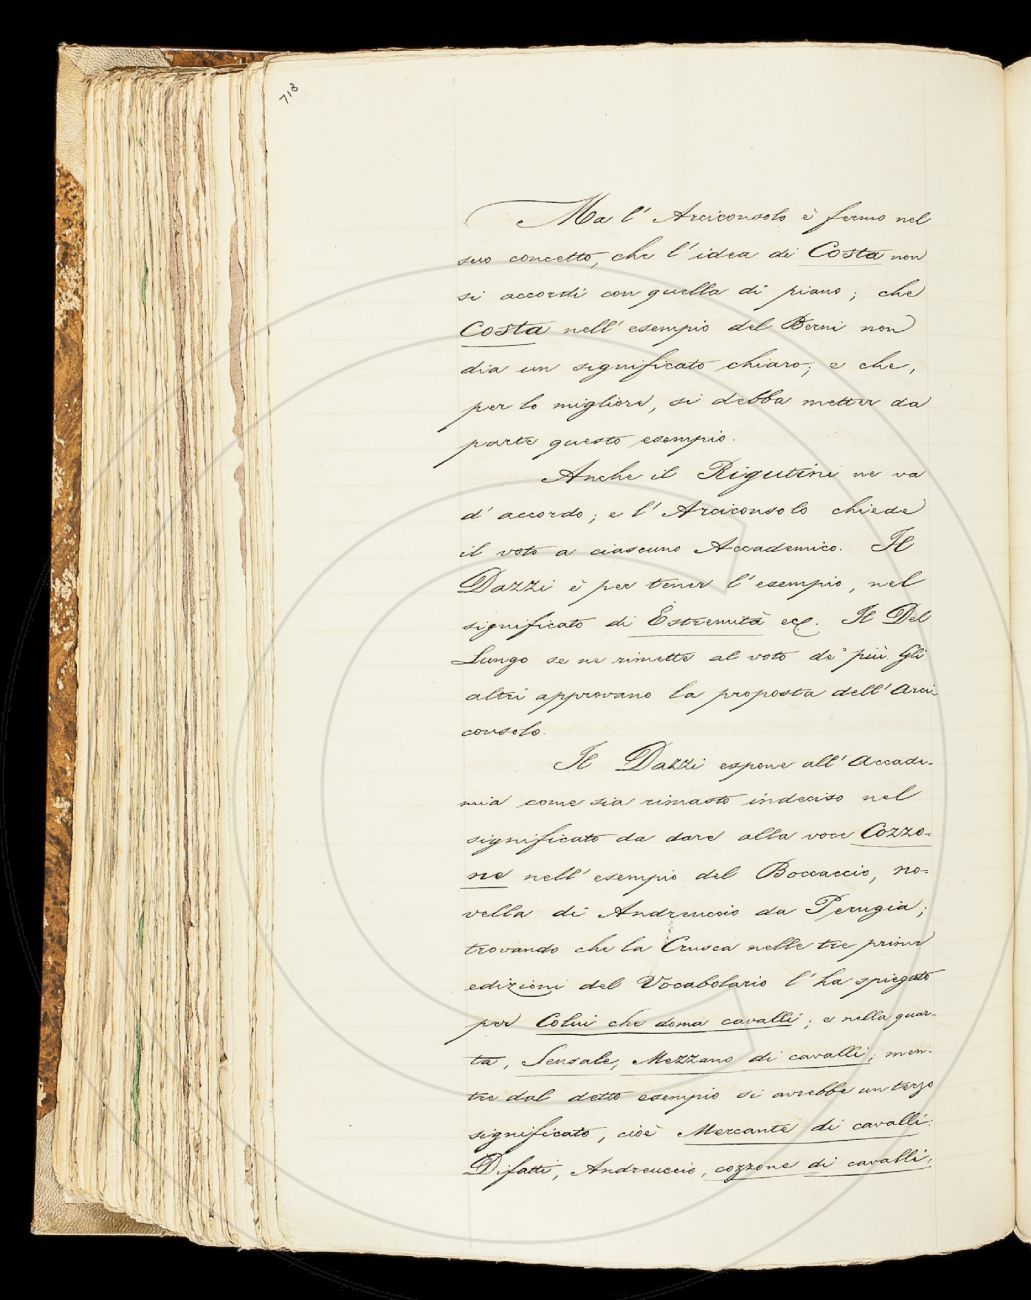 718
Ma l' Arciconsolo è fermo nel
suo concetto, che l'idea di Costa non
si accordi con quella di piano; che
Costa nell' esempio del Berni non
dia un significato chiaro; e che,
per lo migliore, si debba metter da
parte questo esempio.
Anche il Rigutini ne va
d' accordo; e l' Arciconsolo chiede
il voto a ciascuno Accademico. Il
Dazzi è per tener l' esempio, nel
significato di Estremità ec. Il Del
Lungo se ne rimette al voto de' più. Gli
altri approvano la proposta dell' Arci-
consolo.
Il Dazzi espone all' Accade-
mia come sia rimasto indeciso nel
significato da dare alla voce Cozzo-
ne nell' esempio del Boccaccio, no-
vella di Andreuccio da Perugia;
trovando che la Crusca nelle tre prime
edizioni del Vocabolario l' ha spiegato
per Colui che doma cavalli; e nella quar-
ta, Sensale, Mezzano di cavalli; men-
tre dal detto esempio si avrebbe un terzo
significato, cioè Mercante di cavalli.
Difatti, Andreuccio, cozzone di cavalli,